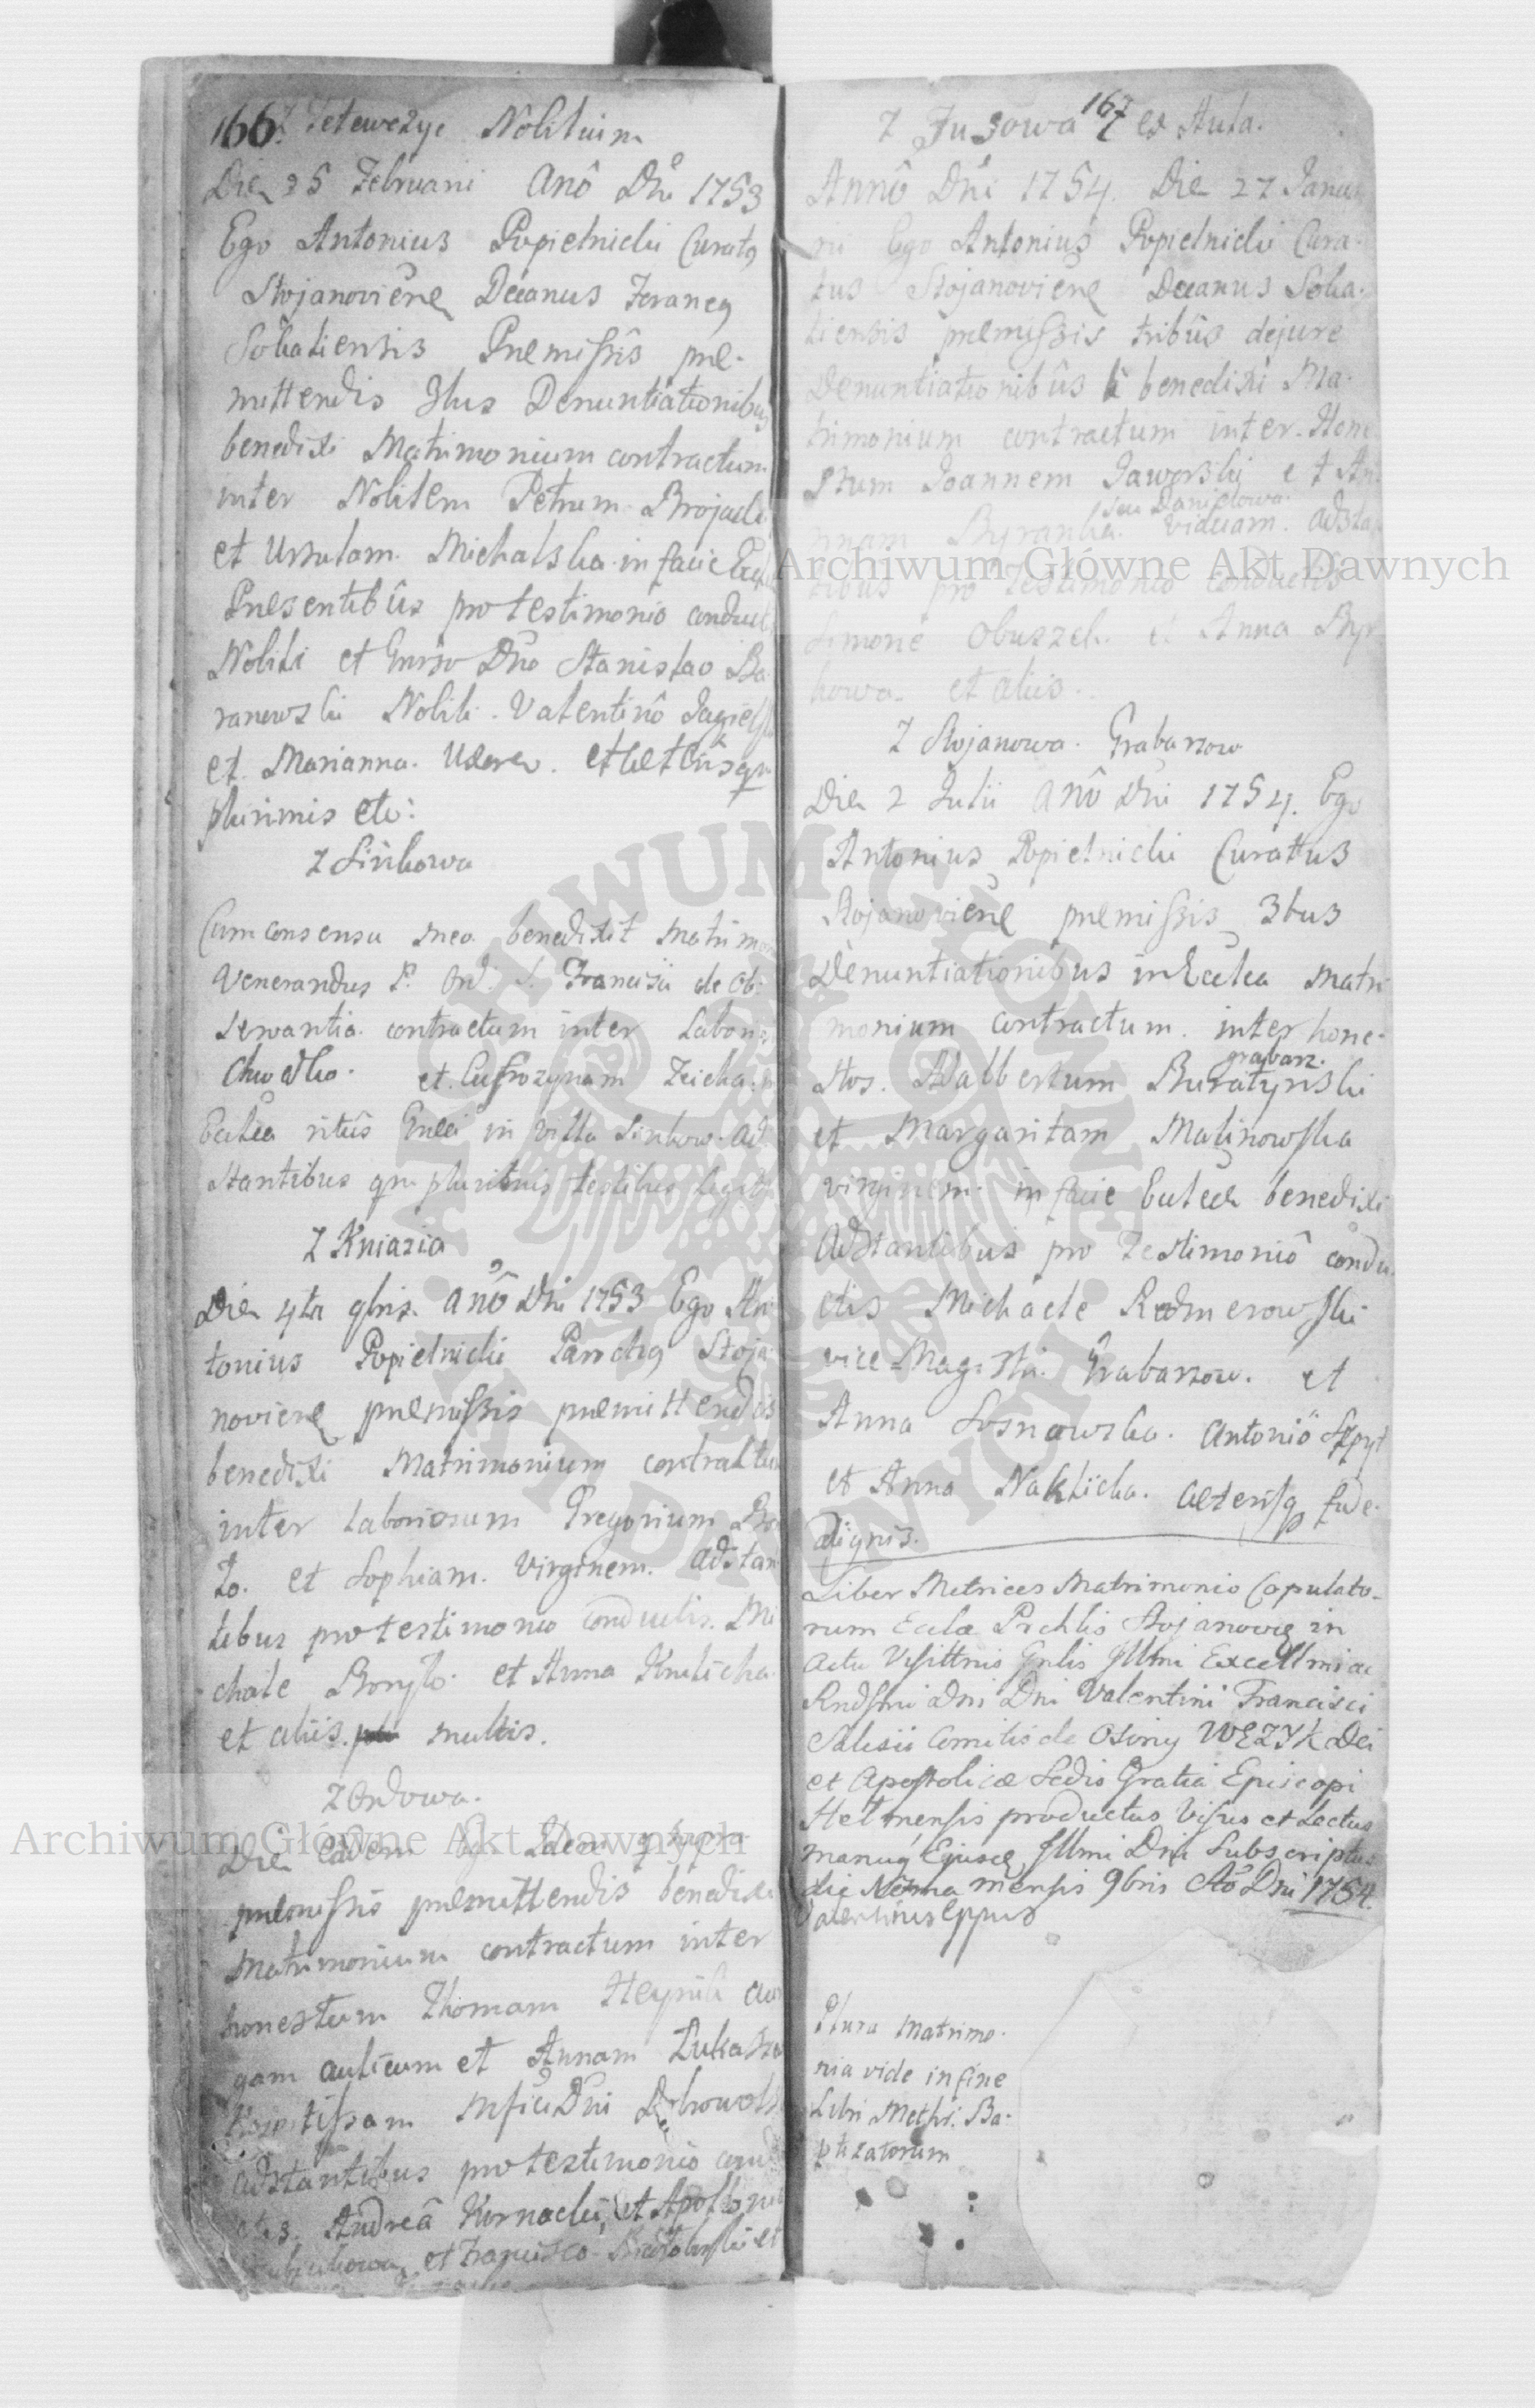 166. Z Tetewczyc Nobilium
Die 25 Februarii Anô Dni 1753
Ego Antonius Popielnicki Curatq
Stojanoviene Decanus Foraneq
Sokaliensis Premissis pre-
mittendis 3bus Denuntiationibus
benedixi Matrimonium contractum
inter Nobilem Petrum
et Ursulam Michalska in facie
Presentibûs pro testimonio conduct
Nobili et Gnrso Dno Stanislao Ba
ranowski Nobili Valentinô Jagiels
et Marianna Uxore et cetêrisqu
plurimis etc:
Z Sińkowa
Cum consensu meo benedixit Matrimo
Venerandus P. Ord. S. Francisii de Ob-
servantia contractum inter Labori
Chwedko et Eufrozynam
Eccliâ ritûs Graeci in Villa Sinkow Ad
stantibus qm plurimis testibus legit
Z Kniazia
Die 4ta gbris Anô Dni 1753 Ego An
tonius Popielnicki Parochq Stoja
noviene premissis premittendis
benedixi Matrimonium contractu
inter Laboriosum Gregorium Bo
Zo. et Sophiam Virginem adstan
tibus pro testimonio conductis Mi
chale et Anna
et aliis multis.
Z Ordowa
Die eâdem Ego Idem q supra
premissis premittendis benedixi
Matrimonium contractum inter
honestum Thomam au
gam aulicum et Annam Lukasze
Mfici Dni
adstantibus pro testimonio cond
ctis Andreâ Kornacki et Apollonia
et Francisco et
167
Z Juzowa ex Aula.
Annô Dni 1754. Die 27 Janua
rii Ego Antonius Popielnicki Cura-
tus Stojanoviene Decanus Soka-
liensis premissis tribûs de jure
Denuntiationibûs benedixi Ma-
trimonium contractum inter Hone
stum Joannem Jaworski et An
seu Danielowa
nnam viduam adsta
tibus pro testimonio conductis
Simone Obuszek et Anna
kowa et aliis.
Z Stojanowa Grabarzow
Die 2 Julii Anô Dni 1754. Ego
Antonius Popielnicki Curattus
Stojanoviene premissis 3bus
Denuntiationibus in Ecclea Matri
monium contractum inter hone-
grabarz.
stos Adalbertum Buratynski
et Margaritam Malinowska
virginem in facie Eccleæ benedixi
Adstantibus pro Testimoniô condu
ctis Michaele Redmerowski
vice Magistri Grabarzow et
Anna Sosnowska Antoniô
et Anna Naklicka ceterisq fide-
dignis.
Liber Metrices Matrimonio Copulato-
rum Eccla Prchlis Stojanoviē in
actu Visittnis Gnlis Illmi Excellmi ac
Rndsmi Dni Dni Valentini Francisci
Salesii Comitis de Osiny WĘZYK Dei
et Apostolicæ Sedis Gratia Episcopi
Helmensis productus Visus et Lectus
manuq Ejusde Illmi Dni Subscriptus
die Nonna mensis 9bris Aō Dni 1754.
Valentinus Eppus
Plura Matrimo-
nia vide in fine
Libri Methri. Ba-
ptizatorum
Archiwum Główne Akt Dawnych
Archiwum Główne Akt Dawnych
ARCHIWUM GŁÓWNE AKT DAWNYCH